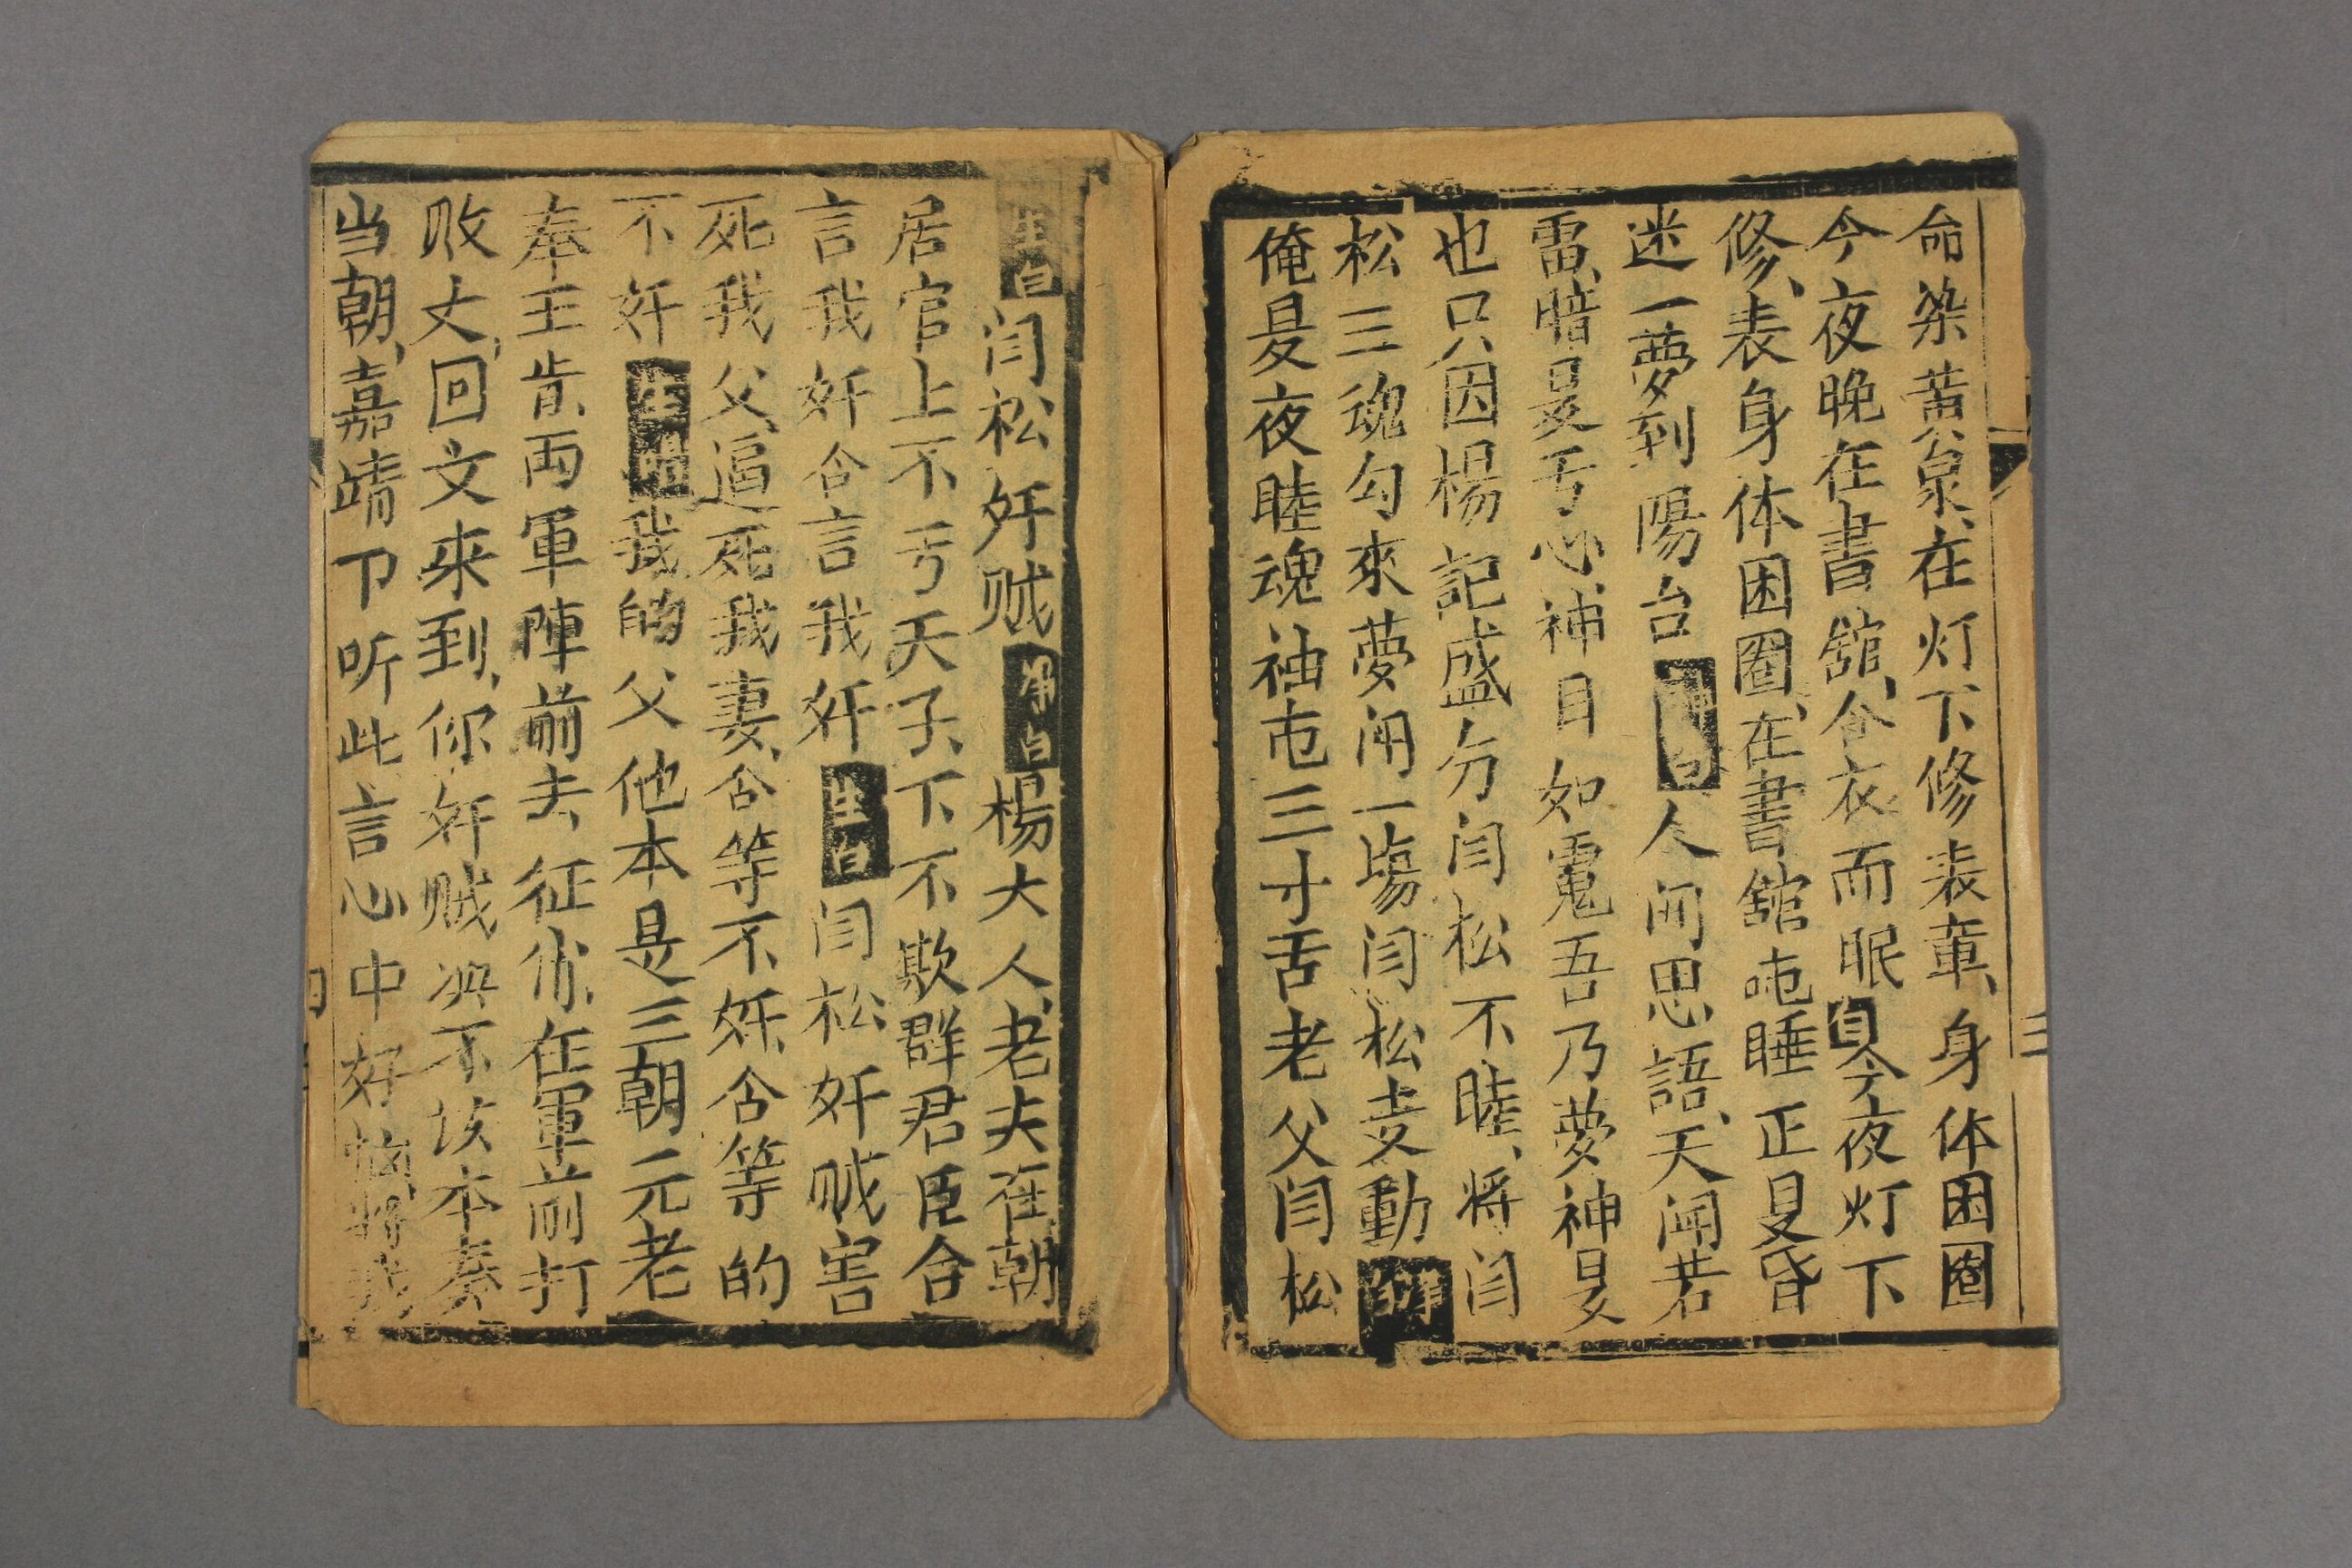 命染黄泉、在灯下修表章、身体困圈
今夜晚在書舘、合衣而眠白今夜灯下
修、表身体困圈、在書舘盹睡正是昏
迷一夢到陽台白人间思語、天闻若
雷、暗是亏心、神目如電吾乃夢神是
也只因楊記盛分闫松不睦、将闫
松三魂勾來夢闹一塲闫松麦動
俺是夜睦魂袖屯三寸舌老父闫松
三
生白闫松奸贼净白楊大人、老夫在朝
居官上不亏天子、下不欺群君臣合
言我奸合言我奸生白闫松奸贼害
死我父、逼死我妻、合等不奸、合等的
不奸生唱我的父他本是三朝元老
奉王旨、両軍陣前去、征伐、在軍前打
败丈、回文來到、你奸贼興不该本奏
当朝、嘉靖下听此言心中好恼、将我